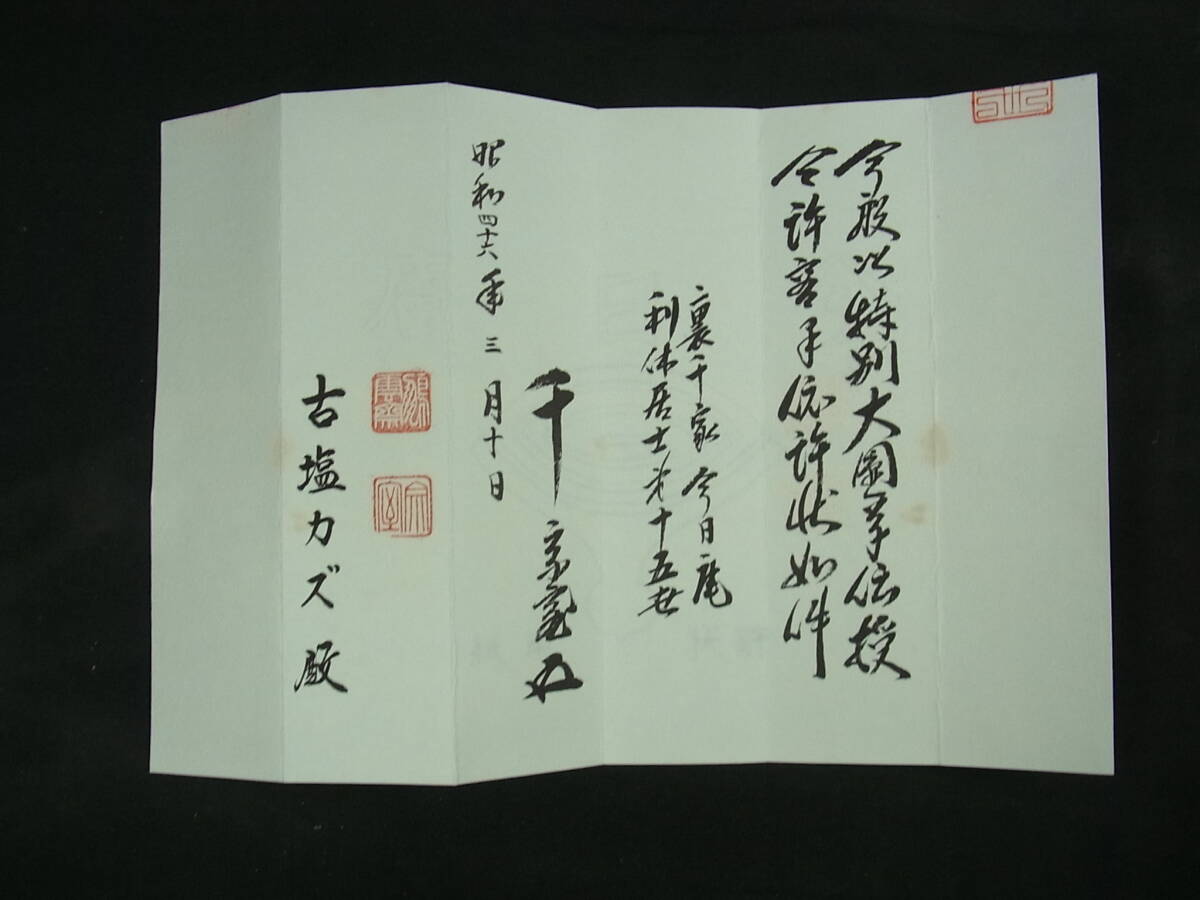 今般以特別大圓草伝授
令許容畢依許状如件
裏千家 今日庵
利休居士第十五世
千宗室
昭和四十六年三月十日
鵬雲斎
宗室
古塩カズ殿